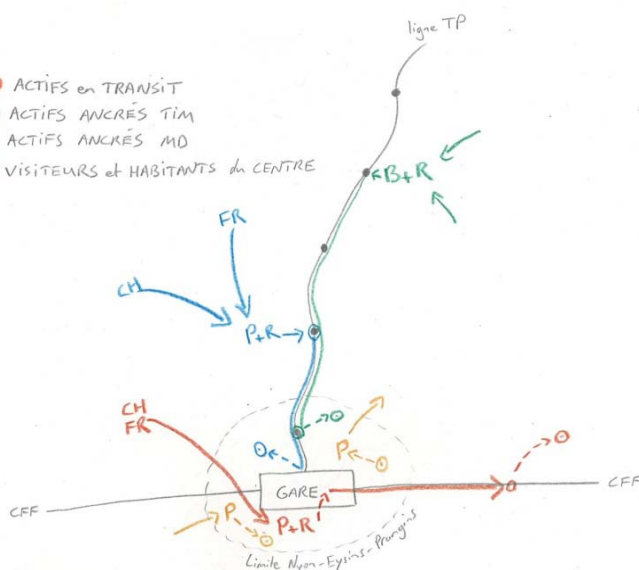 ligne TP
ACTIFS en TRANSIT
ACTIFS ANCRÉS TIM
ACTIFS ANCRÉS MD
VISITEURS et HABITANTS du CENTRE
B+R
FR
CH
P+R
CH
FR
P
GARE
CFF
CFF
P
P+R
Limite Nyon-Eysins-Prangins